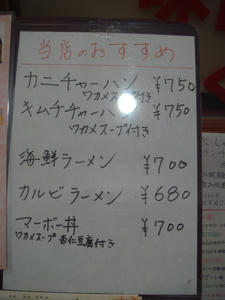 当店のおすすめ
カニチャーハン ¥750
ワカメスープ付き
キムチチャーハン ¥750
ワカメスープ付き
海鮮ラーメン ¥700
カルビラーメン ¥680
マーボー丼 ¥700
ワカメスープ 杏仁豆腐付き